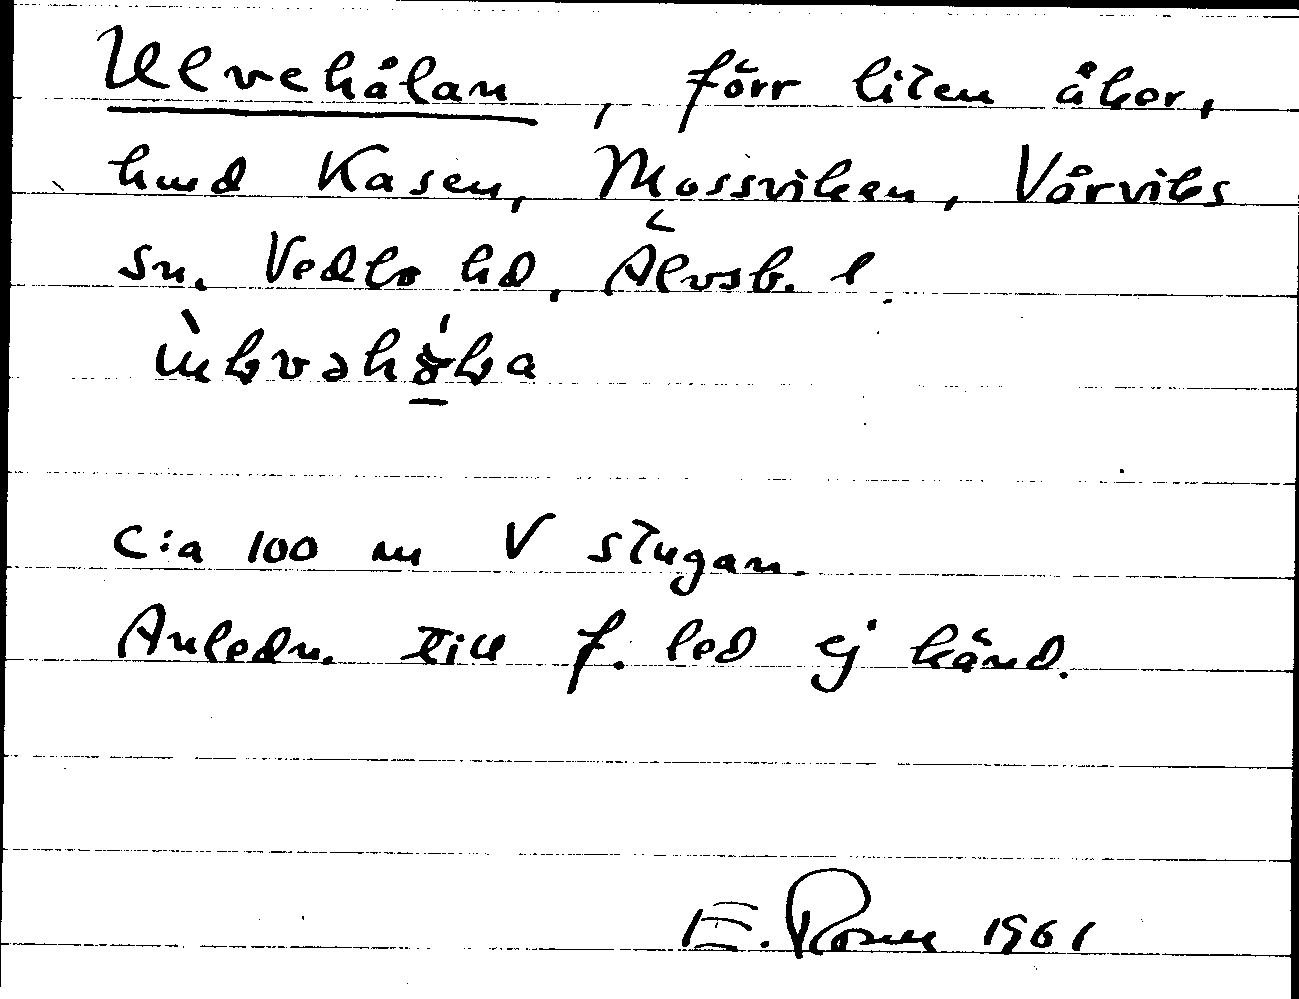 Ulvehålan, förr liten åker,
hmd Kasen, Mossviken, Vårviks
sn. Vedbo hd, Älvsb. l.
c:a 100 m V stugan.
Anledn. till f. led ej känd.
E. Rosen 1961